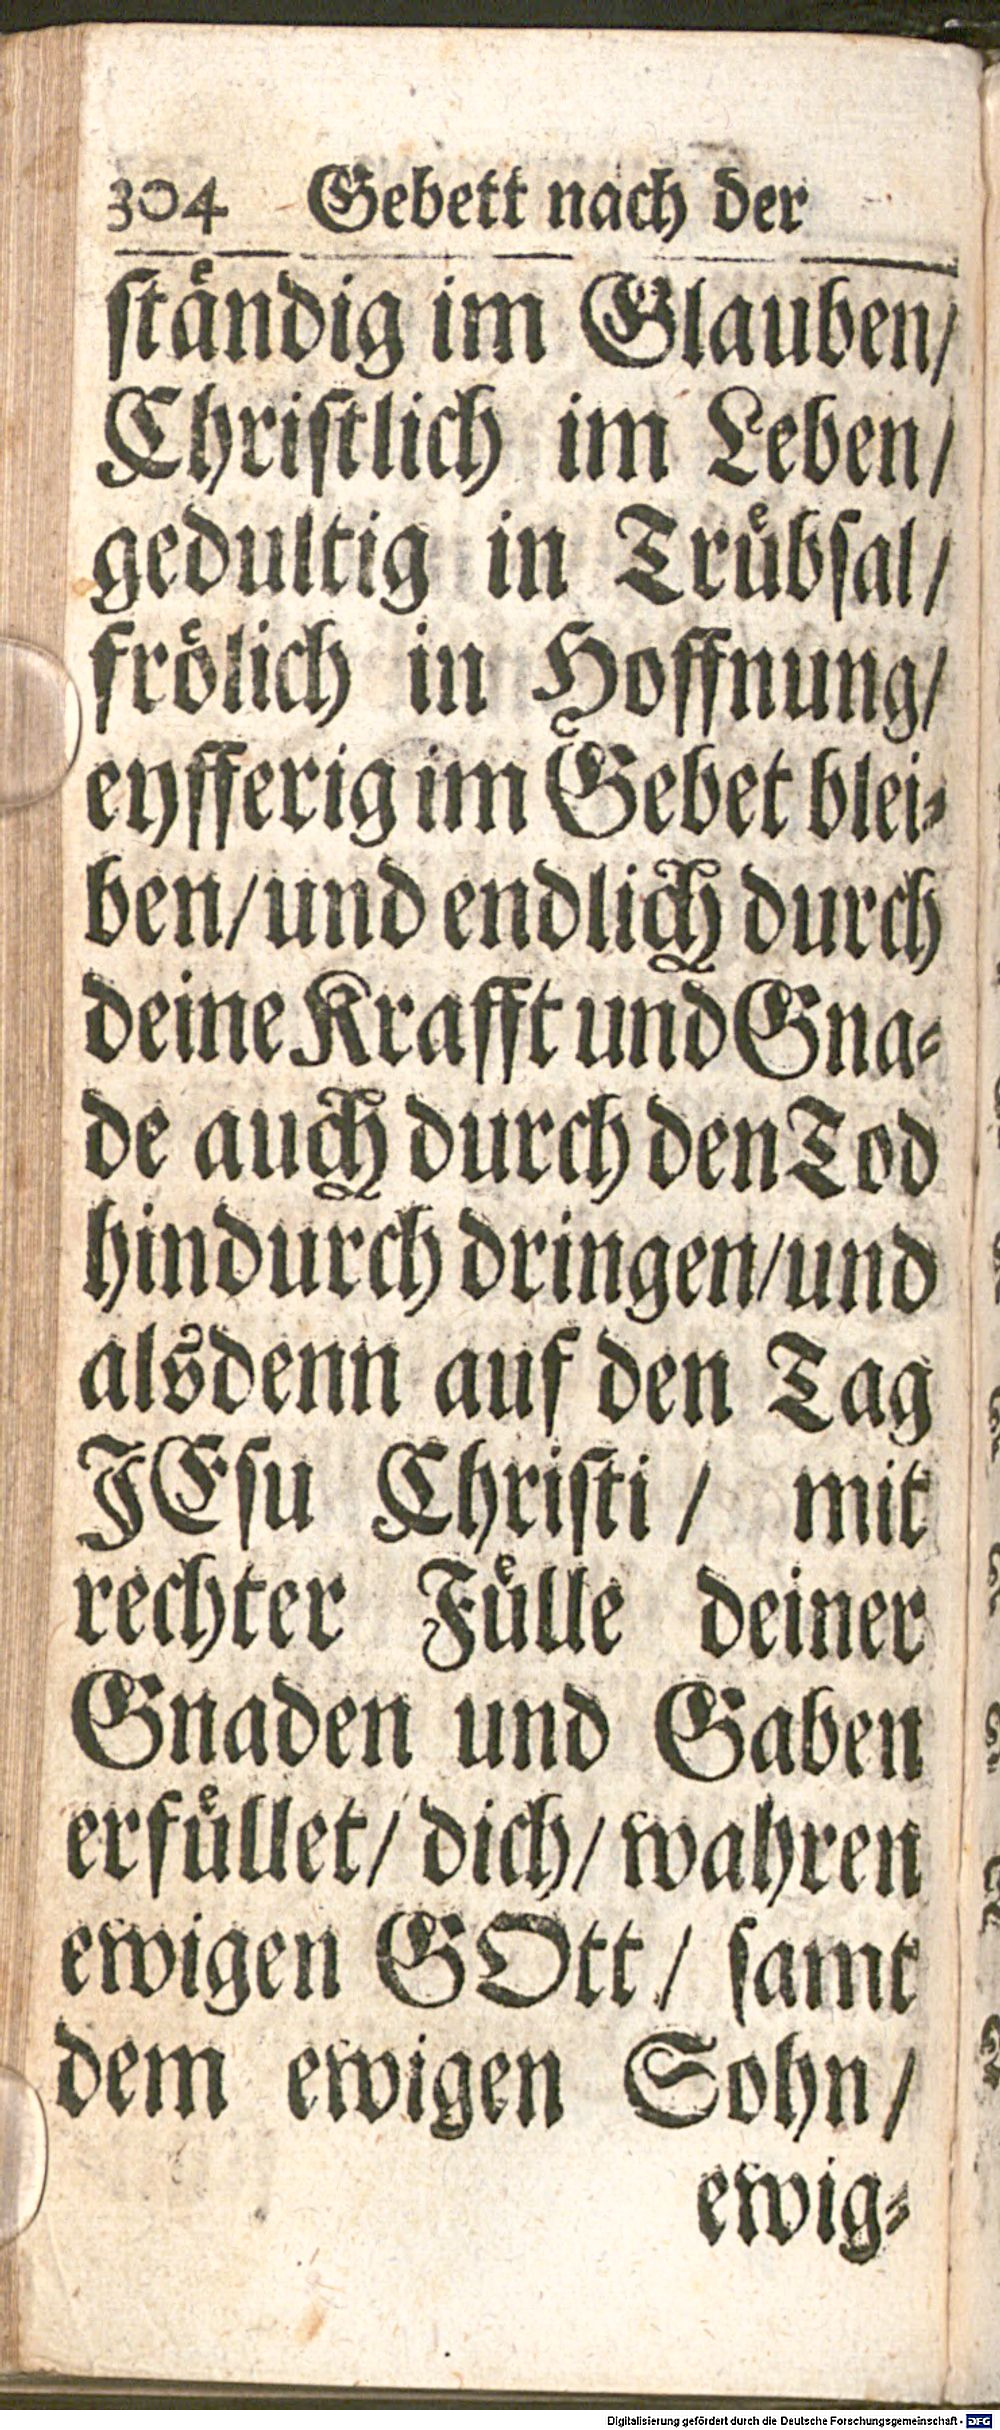 304 Gebett nach der
ſtaͤndig im Glauben/
Chriſtlich im Leben/
gedultig in Truͤbſal/
froͤlich in Hoffnung/
eyfferig im Gebet blei⸗
ben/und endlich durch
deine Krafft und Gna⸗
de auch durch den Tod
hindurch dringen/und
alsdenn auf den Tag
JEſu Chriſti / mit
rechter Fuͤlle deiner
Gnaden und Gaben
erfuͤllet/ dich/ wahren
ewigen GOtt / ſamt
dem ewigen Sohn /
ewig⸗
Digitalisierung gefördert durch die Deutsche Forschungsgemeinschaft - DFG